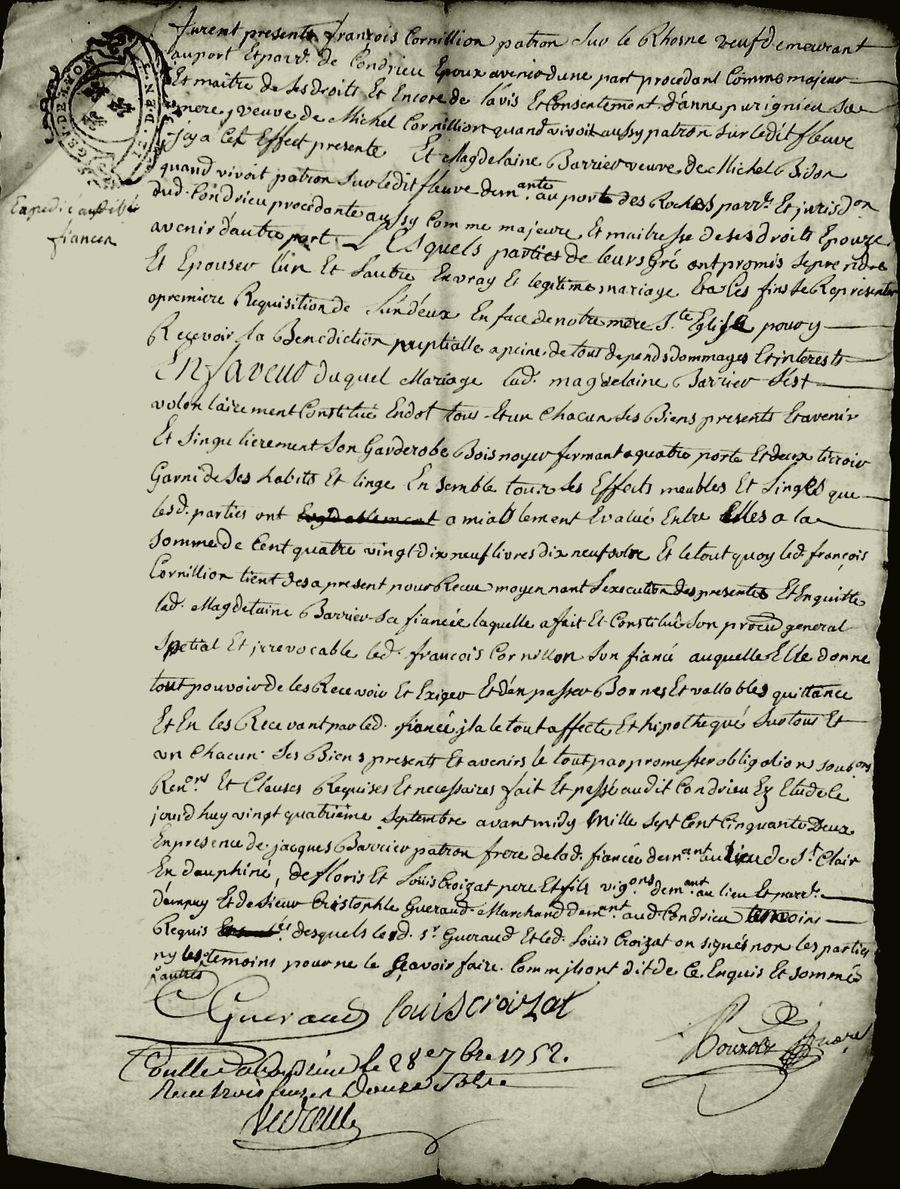 GE. DE LYON
furent presents francois Cornillion patron sur le Rhosne veuf demeurant
au port Et parr. de Condrieu Epoux avenir dune part procedant Comme majeur
Et maitre de ses droits Et Encore de lavis Et Consentement d'anne purignieu sa
mere, veuve de Michel Cornillion quand vivoit aussy patron sur ledit fleuve
jcy a Cet Effect presente Et Magdelaine Barrier veuve de Michel Bidon
quand vivoit patron sur ledit fleuve dem.ante au port des Roches parr. Et jurisd.on
dud. Condrieu procedante aussy Comme majeure Et maitresse de ses droits Epouze
avenir d'autre part. Lesquels parties de leurs gré ont promis se prendre
Et Epouser l'un Et l'autre En vray Et legitime mariage Et a Ces fins se Representer
a premiere Requisition de l'un d'eux En face de notre mere S.te Eglise pour y
Recevoir la Benediction nuptialle a peine de tous depends dommages Et interests
En faveur duquel Mariage lad. magdelaine Barrier s'est
volontairement Constitué En dot tous Et un chacun ses Biens presents Et avenir
Et singulierement son Garderobe Bois noyer fermant a quatre porte Et deux tirroir
Garni de ses habits Et linge En semble tous ses Effets meubles Et linges que
lesd. parties ont amiablement Evalué Entre Elles a la
somme de Cent quatre vingt dix neuf livres dix neuf sols Et le tout quoy led. françois
Cornillion tient des a present pour Recue moyennant l'execution des presentes Et En quitte
lad. Magdelaine Barrier sa fiancée laquelle a fait Et Constitué son procur general
spetial Et jrrevocable led. francois Cornillon son fiancé auquelle Elle donne
tout pouvoir de les Recevoir Et Exiger Et d'en passer Bonnes Et vallables quittance
Et En les Recevant par led. fiancé jl a le tout affecté Et hipothequé sur tous Et
un Chacun ses Biens presents Et avenirs le tout par promesses obligations soub.ons
Ren.ons Et Clauses Requises Et necessaires fait Et passé audit Condrieu Ez Etude le
jourd huy vingt quatrieme Septembre avant midy Mille sept Cent Cinquante Deux
En presence de jacques Barrier patron frere de lad. fiancée dem.ant au lieu de S.t Clair
En dauphiné, de floris Et Louis Croizat pere Et fils vig.ons dem.ant au lieu Et parr.
d'empuy Et de sieur Cristophle Gueraud Marchand dem.ant aud Condrieu temoins
Requis desquels led. s.r Gueraud Et led. Louis Croizat on signés non les parties
ny les autres temoins pour ne le sçavoir faire Comm jls ont dit de Ce Enquis Et sommés
Expedié aud.
fiancée
CGueraud louis croizat
Conllé a Condrieu le 28e 7bre 1752.
Receu trois livres Douze sols